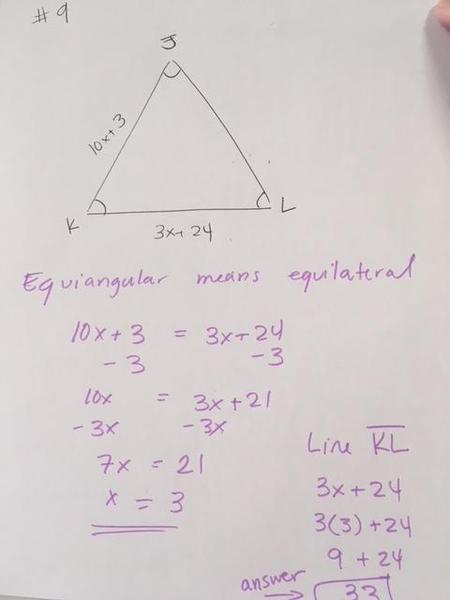 #9
J
10x+3
K
L
3x+24
Equiangular means equilateral
10x+3 = 3x+24
-3 -3
10x = 3x+21
-3x -3x
7x = 21
x = 3
Line KL
3x+24
3(3)+24
9+24
answer
33